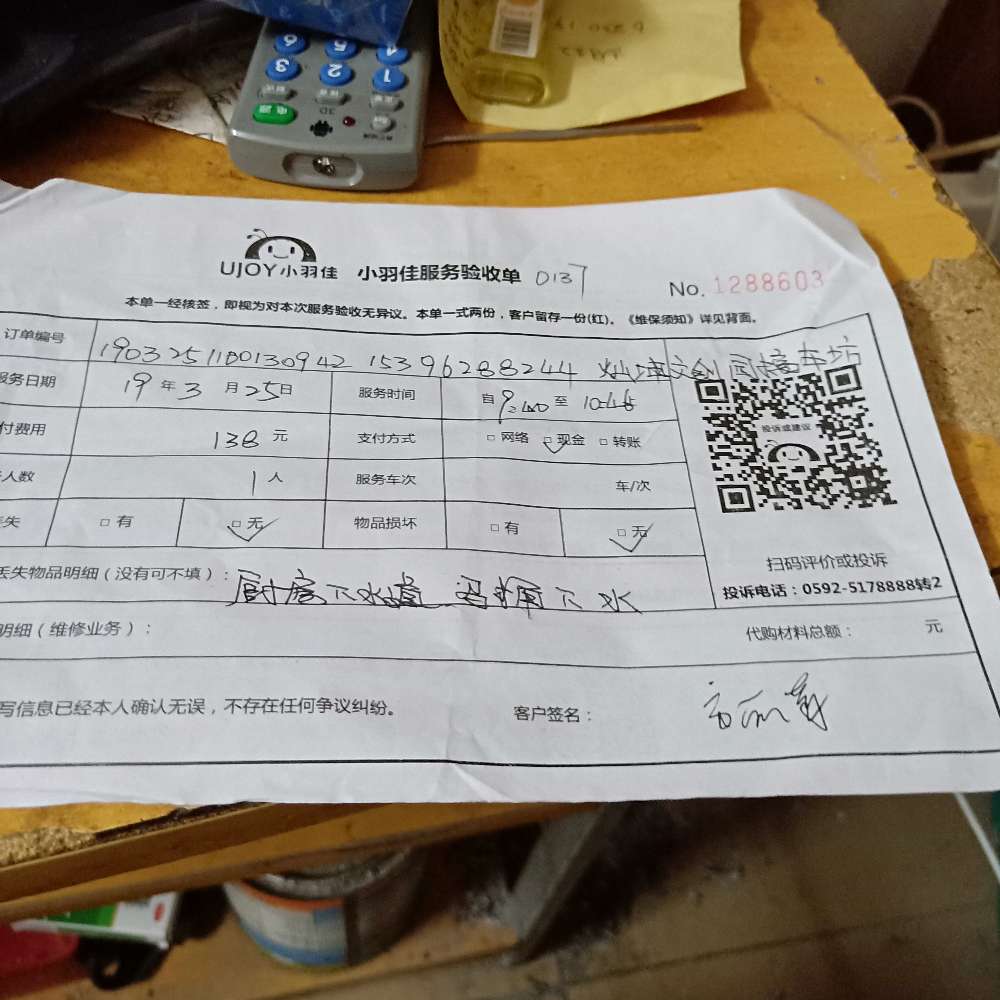 6 5 4
3 2 1
电源
3D
UJOY小羽佳 小羽佳服务验收单 0137
No. 1288603
本单一经核签，即视为对本次服务验收无异议。本单一式两份，客户留存一份(红)。《维保须知》详见背面。
订单编号 1903251100130942 15396288244
服务日期 19 年 3 月 25 日 服务时间 自 9:40 至 10:46
付费用 138 元 支付方式 □ 网络 □ 现金 □ 转账
人数 1 人 服务车次 车/次
失 □ 有 □ 无 物品损坏 □ 有 □ 无
投诉或建议
扫码评价或投诉
投诉电话：0592-5178888转2
丢失物品明细（没有可不填）： 厨房下水道 下水
明细（维修业务）： 代购材料总额： 元
写信息已经本人确认无误，不存在任何争议纠纷。 客户签名：